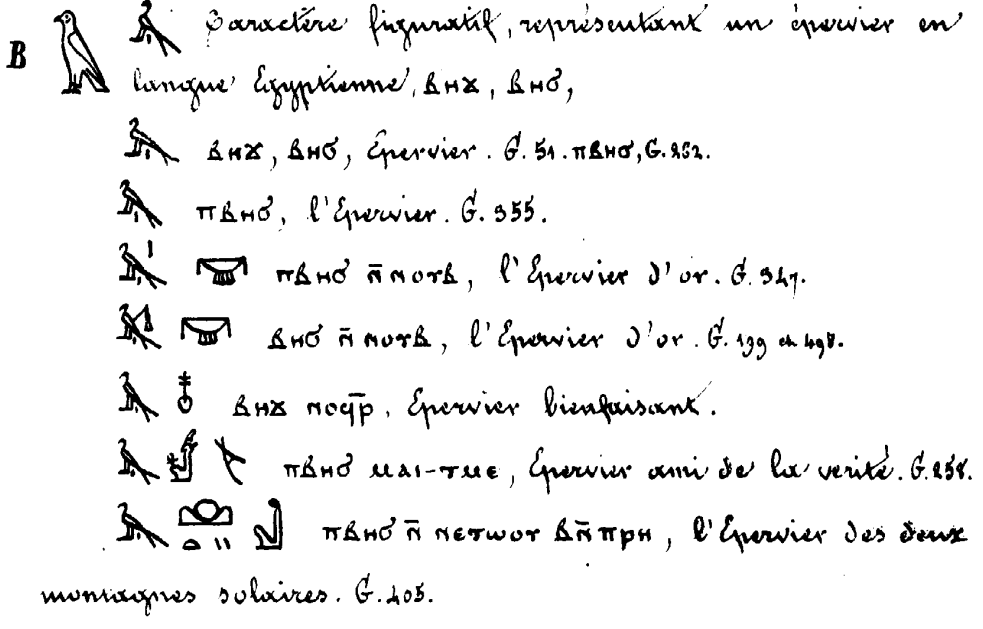 B Caractère figuratif, représentant un épervier en
langue Egyptienne, ⲃⲏϫ, ⲃⲏϭ,
ⲃⲏϫ, ⲃⲏϭ, Épervier. G. 51. ⲡⲃⲏϭ, G. 232.
ⲡⲃⲏϭ, l'Épervier. G. 355.
ⲡⲃⲏϭ ⲛ̄ⲛⲟⲩⲃ, l'Épervier d'or. G. 347.
ⲃⲏϭ ⲛ̄ ⲛⲟⲩⲃ, l'Épervier d'or. G. 139 et 498.
ⲃⲏϫ ⲛⲟϥⲣ̄, Épervier bienfaisant.
ⲡⲃⲏϭ ⲙⲁⲓ-ⲧⲙⲉ, Épervier ami de la verité. G. 258.
ⲡⲃⲏϭ ⲛ̄ ⲛⲉⲧⲱⲟⲩ ⲃ̄ⲛ̄ⲡⲣⲏ, l'Épervier des deux
montagnes solaires. G. 405.